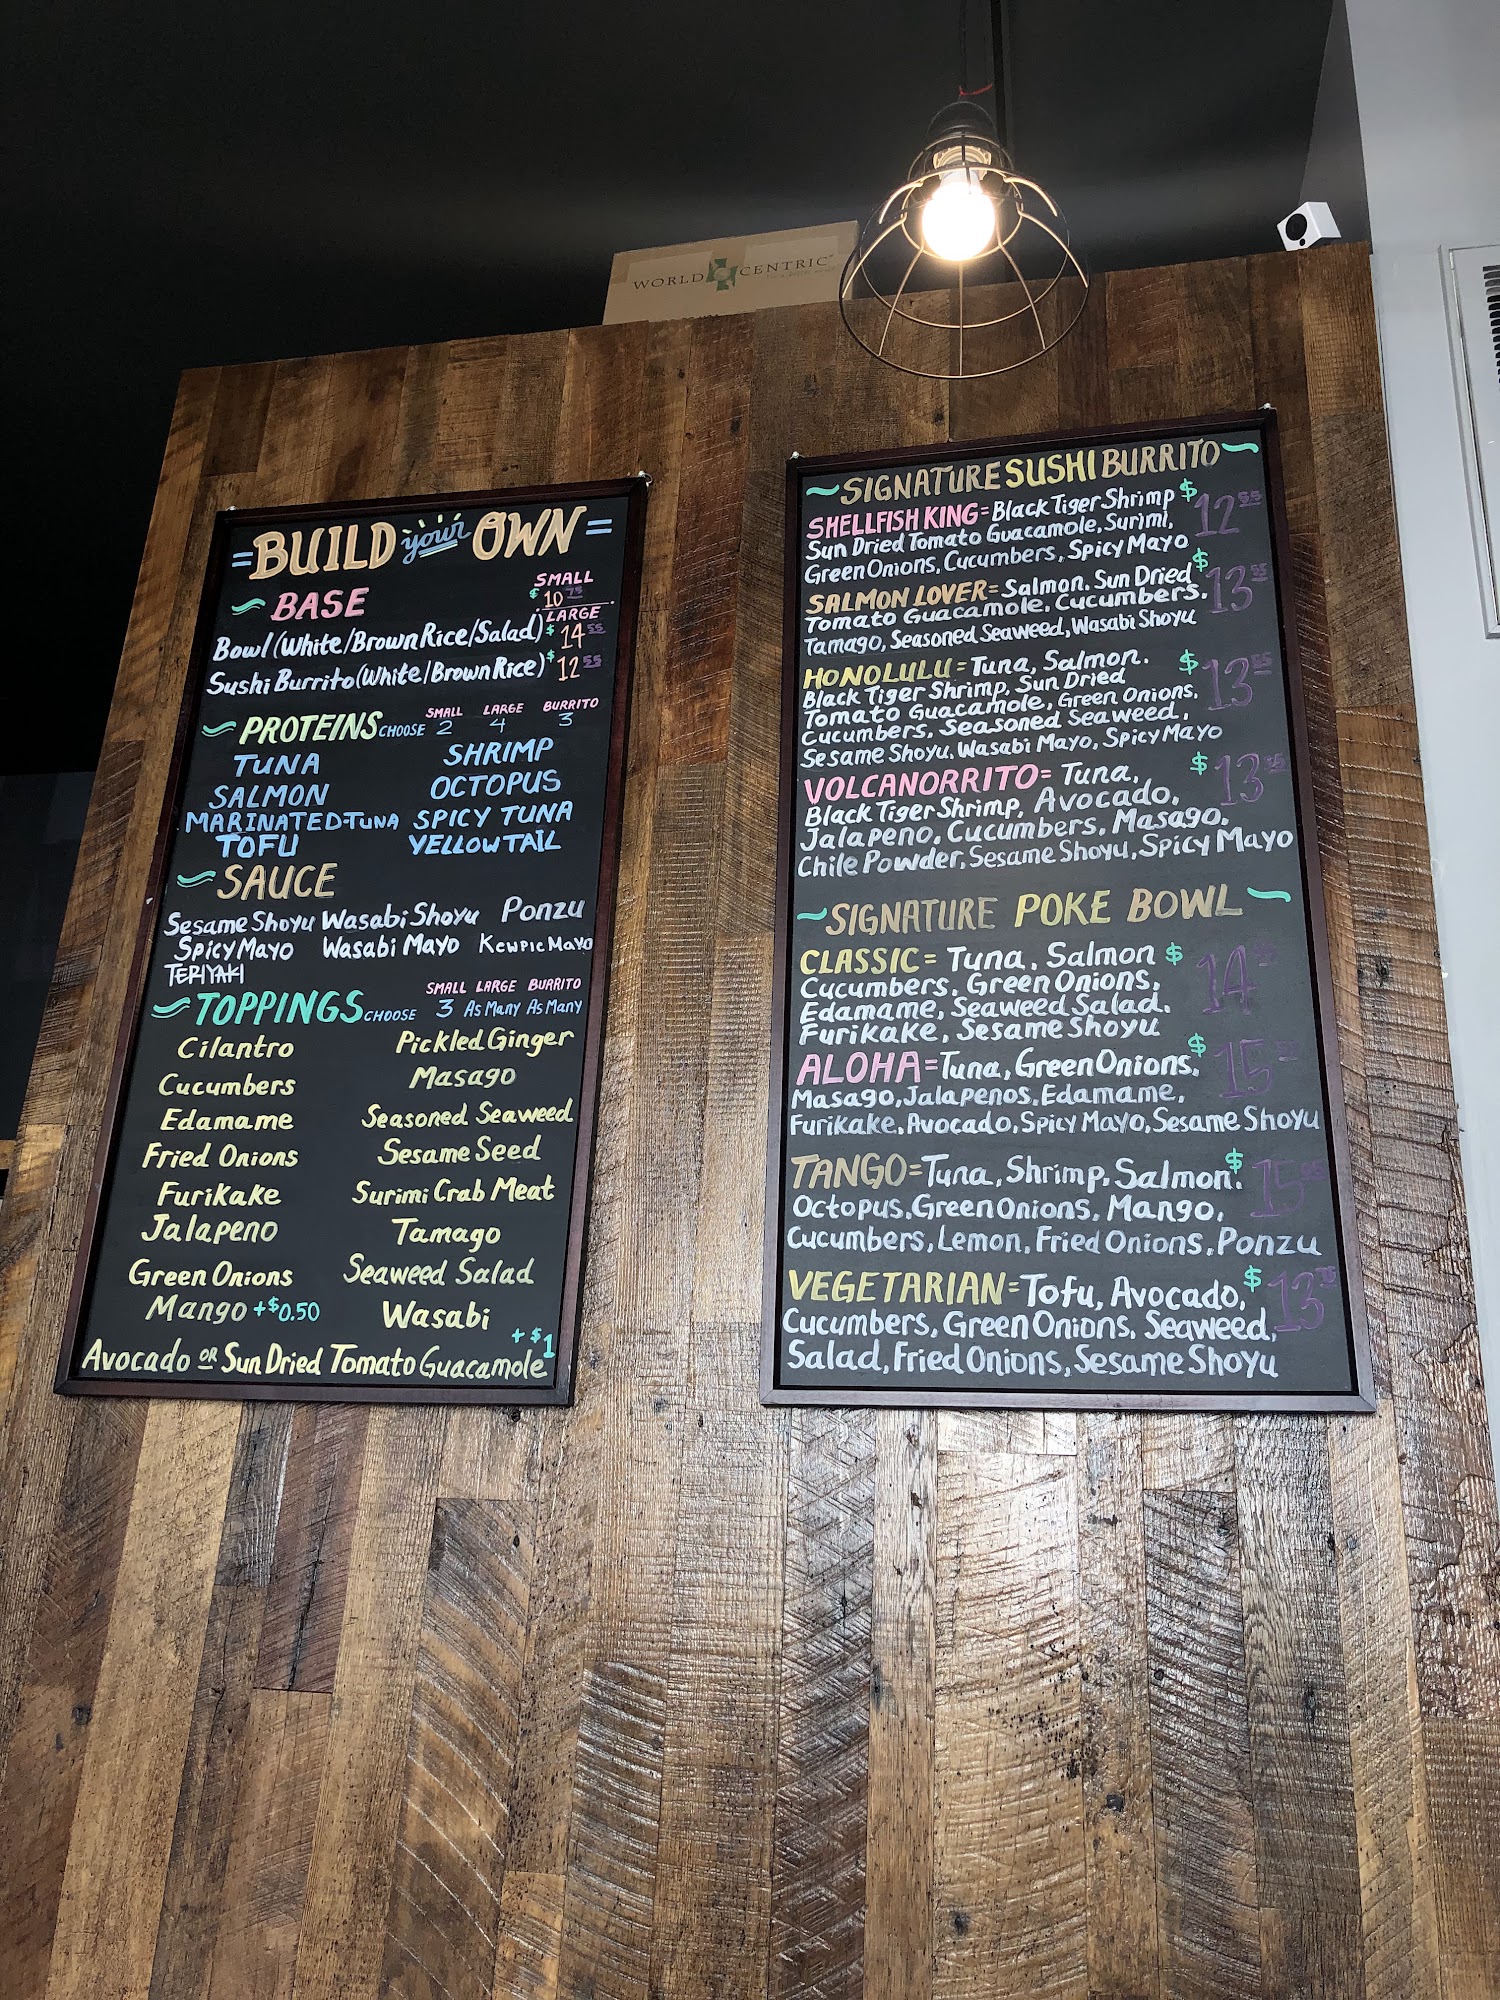 WORLD CENTRIC
=BUILD your OWN=
BASE
SMALL
$10 75
LARGE
Bowl (White/Brown Rice/Salad) $14 55
Sushi Burrito (White/Brown Rice) $12 55
PROTEINS CHOOSE SMALL 2 LARGE 4 BURRITO 3
TUNA SHRIMP
SALMON OCTOPUS
MARINATED-TUNA SPICY TUNA
TOFU YELLOWTAIL
SAUCE
Sesame Shoyu Wasabi Shoyu Ponzu
Spicy Mayo Wasabi Mayo Kewpie Mayo
TERIYAKI
TOPPINGS CHOOSE SMALL 3 LARGE As Many BURRITO As Many
Cilantro Pickled Ginger
Cucumbers Masago
Edamame Seasoned Seaweed
Fried Onions Sesame Seed
Furikake Surimi Crab Meat
Jalapeno Tamago
Green Onions Seaweed Salad
Mango +$0.50 Wasabi
Avocado OR Sun Dried Tomato Guacamole +$1
~SIGNATURE SUSHI BURRITO~
SHELLFISH KING = Black Tiger Shrimp $12 55
Sun Dried Tomato Guacamole, Surimi,
Green Onions, Cucumbers, Spicy Mayo
SALMON LOVER = Salmon, Sun Dried $13 55
Tomato Guacamole, Cucumbers,
Tamago, Seasoned Seaweed, Wasabi Shoyu
HONOLULU = Tuna, Salmon, $13 55
Black Tiger Shrimp, Sun Dried
Tomato Guacamole, Green Onions,
Cucumbers, Seasoned Seaweed,
Sesame Shoyu, Wasabi Mayo, Spicy Mayo
VOLCANORRITO = Tuna, $13
Black Tiger Shrimp, Avocado,
Jalapeno, Cucumbers, Masago,
Chile Powder, Sesame Shoyu, Spicy Mayo
~SIGNATURE POKE BOWL~
CLASSIC = Tuna, Salmon $14
Cucumbers, Green Onions,
Edamame, Seaweed Salad,
Furikake, Sesame Shoyu
ALOHA = Tuna, Green Onions, $15
Masago, Jalapenos, Edamame,
Furikake, Avocado, Spicy Mayo, Sesame Shoyu
TANGO = Tuna, Shrimp, Salmon, $15
Octopus, Green Onions, Mango,
Cucumbers, Lemon, Fried Onions, Ponzu
VEGETARIAN = Tofu, Avocado, $13
Cucumbers, Green Onions, Seaweed,
Salad, Fried Onions, Sesame Shoyu